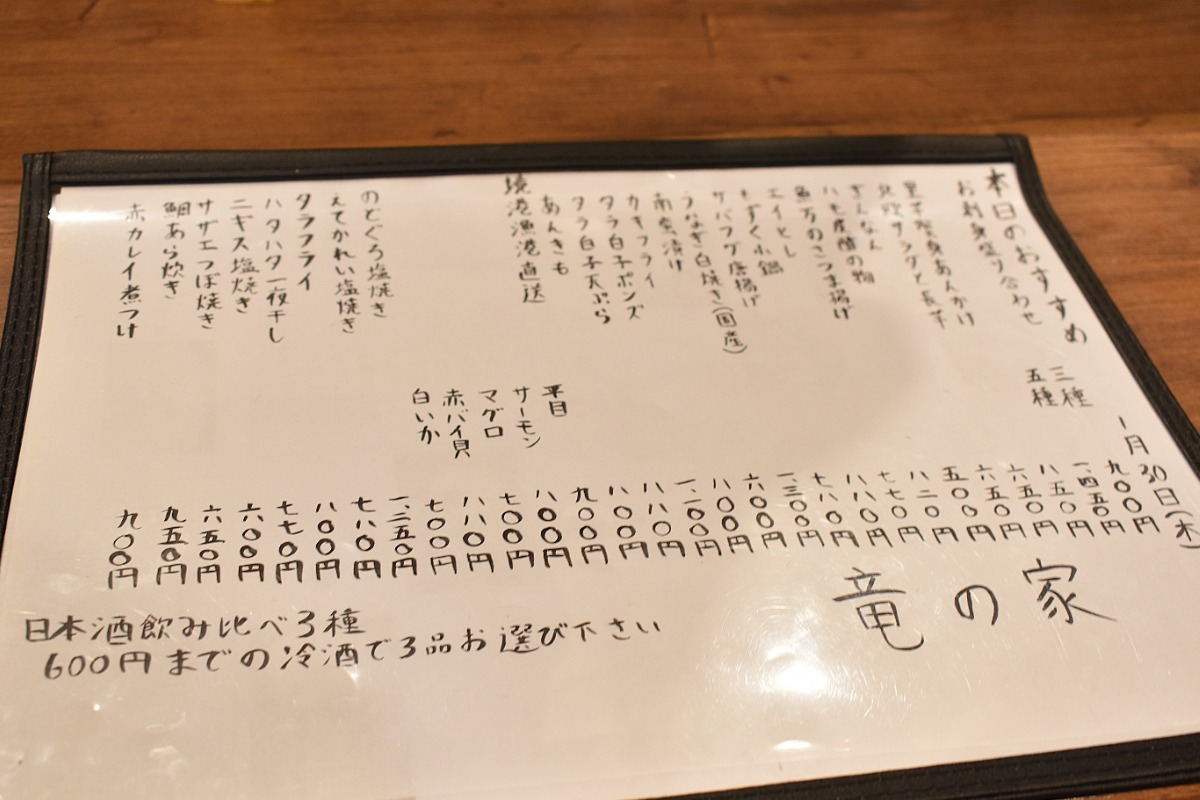 本日のおすすめ 一月30日(木)
お刺身盛り合わせ 三種 九〇〇円
五種 一、四五〇円
あんかけ 八五〇円
六五〇円
ぎんなん 六五〇円
ハモ皮酢の物 五〇〇円
魚万のさつま揚げ 八二〇円
エイヒレ 七七〇円
もずく小鍋 八八〇円
サバフグ唐揚げ 七八〇円
うなぎ白焼き(国産) 一、三〇〇円
南蛮漬け 六〇〇円
カキフライ 八〇〇円
タラ白子ポンズ 一、一〇〇円
タラ白子天ぷら 八八〇円
あんきも 八〇〇円
境港漁港直送
平目 九〇〇円
サーモン 八〇〇円
マグロ 七〇〇円
赤バイ貝 八八〇円
白いか 七〇〇円
のどぐろ塩焼き 一、二五〇円
えてかれい塩焼き 七八〇円
タラフライ 八〇〇円
ハタハタ一夜干し 七七〇円
ニギス塩焼き 六〇〇円
サザエつぼ焼き 六五〇円
鯛あら炊き 九五〇円
赤カレイ煮つけ 九〇〇円
竜の家
日本酒飲み比べ3種
600円までの冷酒で3品お選び下さい